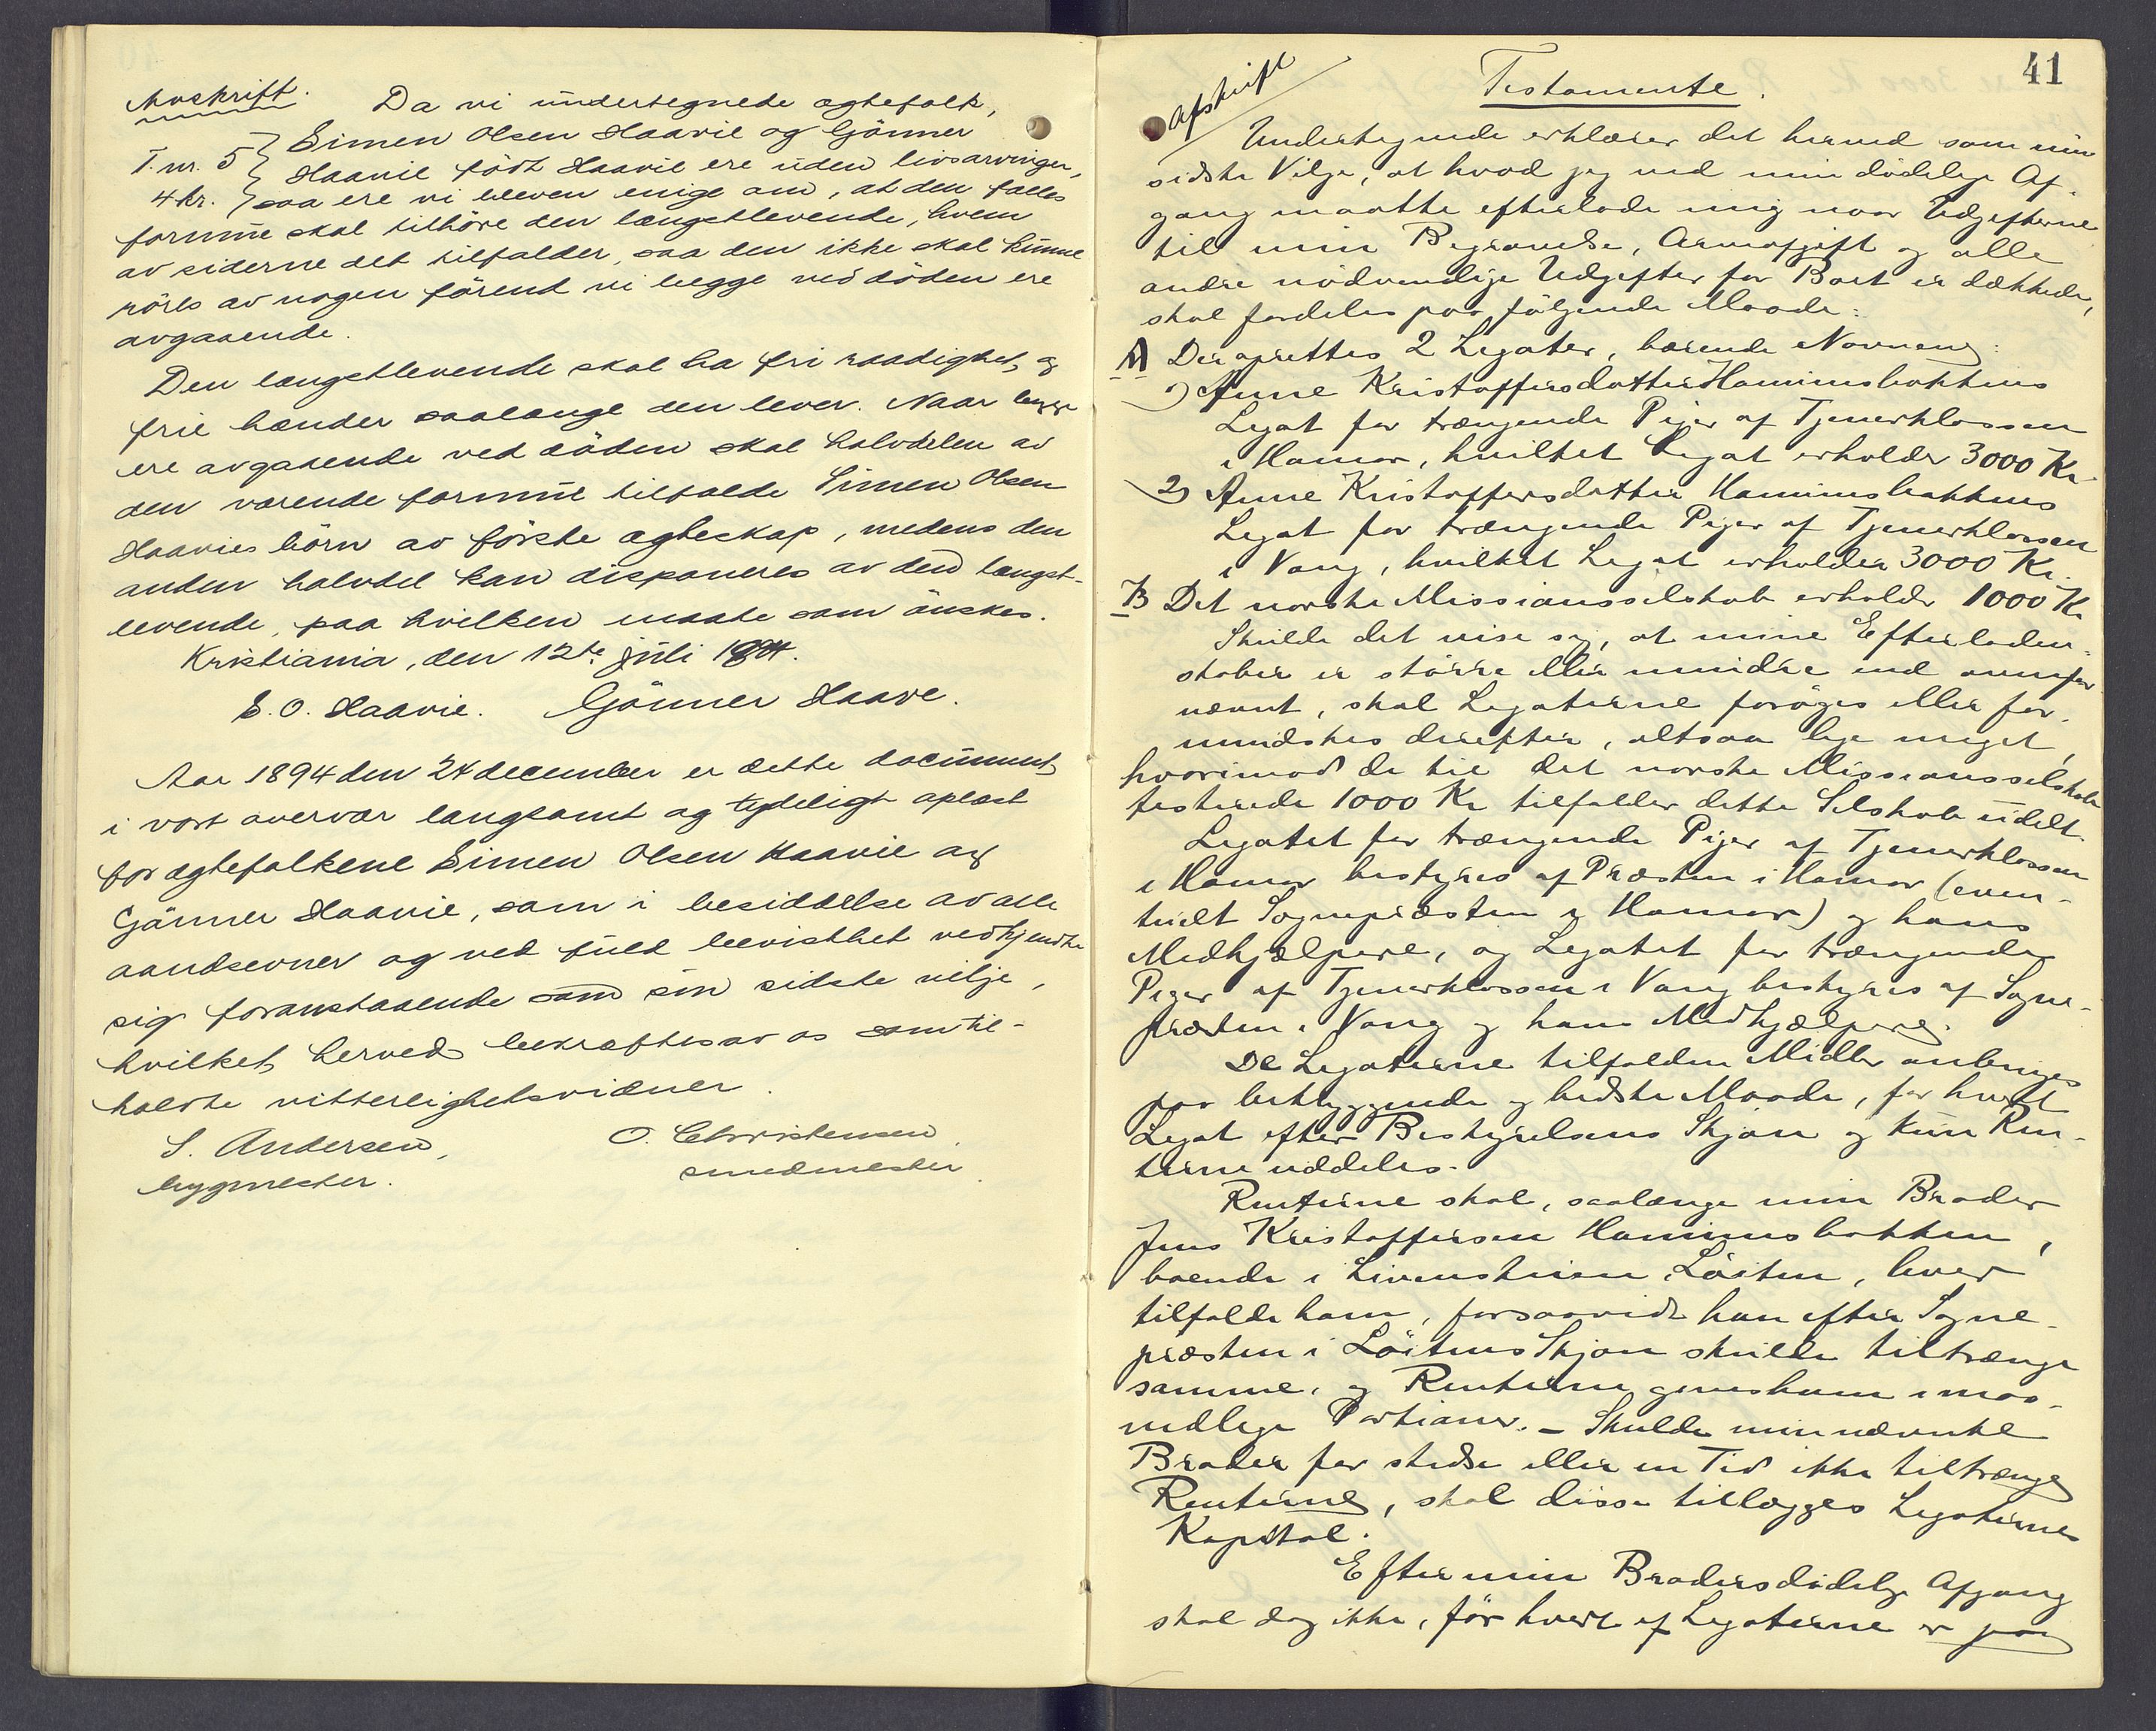 Avskrift.
Da vi undertegnede ægtefolk,
T. nr. 5
4 kr.
Simen Olsen Haavie og Gönner
Haavie födt Haavie ere uden livsarvinger,
saa ere vi bleven enige om, at den fælles
formue skal tilhöre den længstlevende, hvem
av siderne det tilfalder, saa den ikke skal kunne
röres av nogen förend vi begge ved döden ere
avgaaende.
Den længstlevende skal ha fri raadighet og
frie hænder saalænge den lever. Naar begge
ere avgaaende ved döden skal halvdelen av
den værende formue tilfalde Simen Olsen
Haavies börn av förste ægteskap, medens den
anden halvdel kan disponeres av den længst-
levende, paa hvilken maate som önskes.
Kristiania, den 12te juli
S. O. Haavie. Gönner Haave.
Aar 1894 den 24 december er dette document
i vort overvær langsomt og tydeligt oplæst
for ægtefolkene Simen Olsen Haavie og
Gönner Haavie, som i besiddelse av alle
aandsevner og ved fuld bevisthet vedkjendte
sig foranstaaende som sin sidste vilje,
hvilket herved bekræftes av os som til-
kaldte vitterlighetsvidner.
S. Andersen, O. Christensen,
bygmester. smedmester
41
Afskrift
Testamente.
Undertegnede erklærer det herved som min
sidste Vilje, at hvad jeg ved min dödelige Af-
gang maatte efterlade mig naar Udgifterne
til min Begravelse, Arveafgift og alle
andre nödvendige Udgifter for Boet er dækkede,
skal fordeles paa fölgende Maade:
A Der oprettes 2 Legater, bærende Navnene:
1) Anne Kristoffersdatter Hommerbakkens
Legat for trængende Piger af Tjenerklassen
i Hamar, hvilket Legat erholder 3000 Kr.
2) Anne Kristoffersdatter Hommerbakkens
Legat for trængende Piger af Tjenerklassen
i Vang, hvilket Legat erholder 3000 Kr.
B Det norske Missionsselskab erholder 1000 Kr
Skulde det vise sig, at mine Efterladen-
skaber er större eller mindre end ovenfor
nævnt, skal Legaterne foröges eller for-
mindskes derefter, altsaa lige meget,
hvorimod de til det norske Missionsselskab
testerede 1000 Kr tilfaller dette Selskab udelt.
Legatet for trængende Piger af Tjenerklassen
i Hamar bestyres af Præsten i Hamar (even-
tuelt Sognepræsten i Hamar) og hans
Medhjælpere, og Legatet for trængende
Piger af Tjenerklassen i Vang bestyres af Sogne-
præsten i Vang og hans Medhjælpere.
De Legaterne tilfaldne Midler anbringes
paa betryggende og bedste Maade, for hvert
Legat efter Bestyrelsens Skjön og kun Ren-
terne uddeles.
Renterne skal, saalænge min Broder
Jens Kristoffersen Hommerbakken,
boende i Löiten, lever
tilfalde ham, forsaavidt han efter Sogne-
præsten i Löitens Skjön skulde tiltrænge
samme, og Renterne gives ham i maa-
nedlige Portioner. - Skulde min nævnte
Broder for stedse eller en Tid ikke tiltrænge
Renterne, skal disse tillægges Legaternes
Kapital.
Efter min Broders dödelige Afgang
skal dog ikke, för hvert af Legaterne er paa